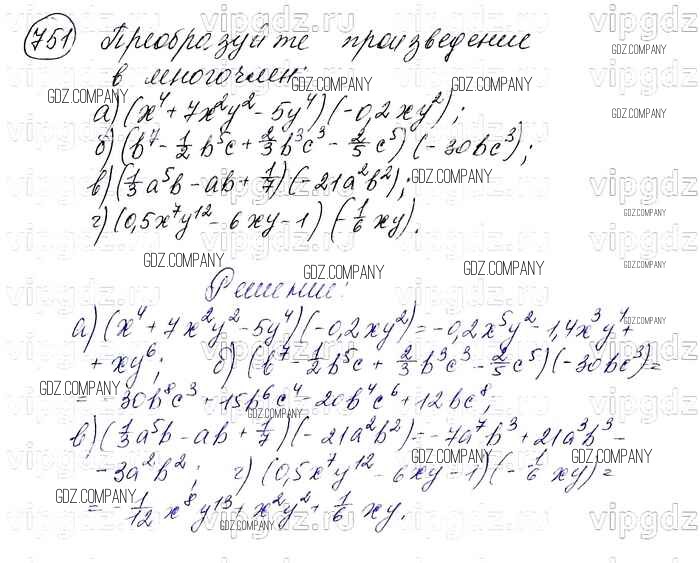 751 Преобразуйте произведение
в многочлен:
а) (x⁴ + 7x²y² - 5y⁴)(-0,2xy²);
б) (b⁷ - 1/2 b⁵c + 2/3 b³c³ - 2/5 c⁵)(-30bc³);
в) (1/3 a⁵b - ab + 1/7)(-21a²b²);
г) (0,5x⁷y¹² - 6xy - 1)(-1/6 xy).
Решение:
а) (x⁴ + 7x²y² - 5y⁴)(-0,2xy²) = -0,2x⁵y² - 1,4x³y⁴ +
+ xy⁶; б) (b⁷ - 1/2 b⁵c + 2/3 b³c³ - 2/5 c⁵)(-30bc³) =
= -30b⁸c³ + 15b⁶c⁴ - 20b⁴c⁶ + 12bc⁸;
в) (1/3 a⁵b - ab + 1/7)(-21a²b²) = -7a⁷b³ + 21a³b³ -
- 3a²b²; г) (0,5x⁷y¹² - 6xy - 1)(-1/6 xy) =
= -1/12 x⁸y¹³ + x²y² + 1/6 xy.